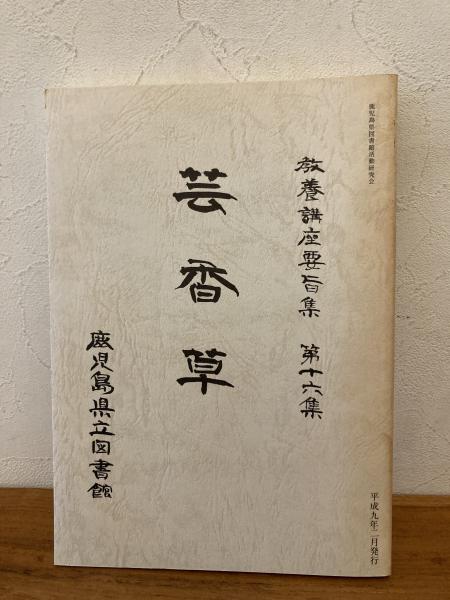 鹿児島県図書館活動研究会
教養講座要旨集　第十六集
芸香草
鹿児島県立図書館
平成九年二月発行